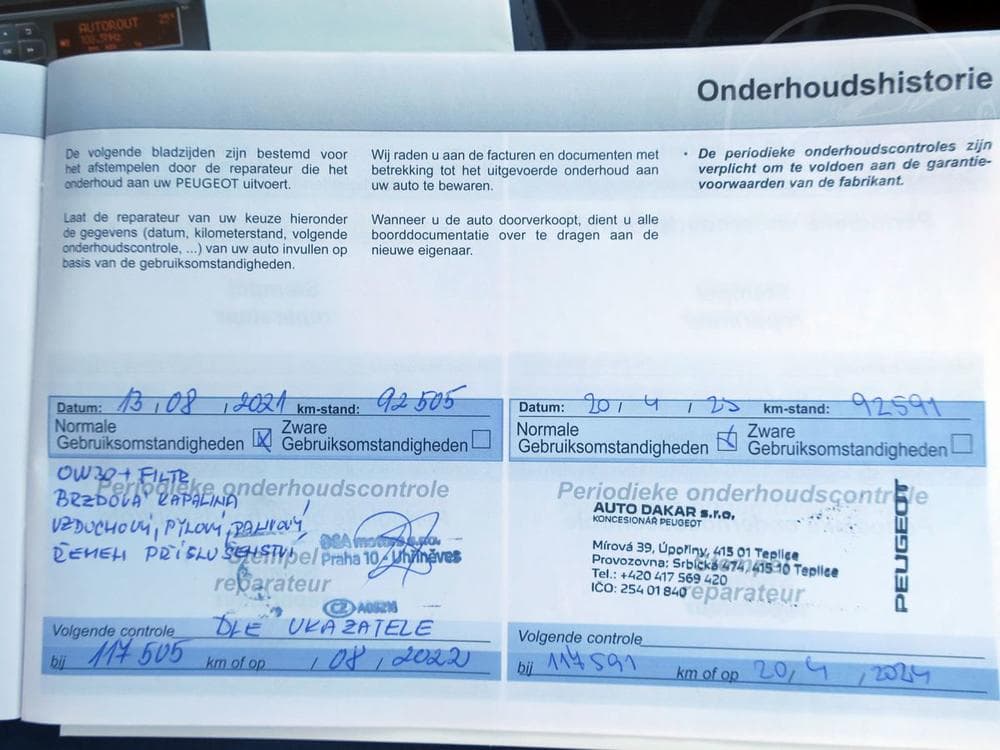 AUTOROUT
Onderhoudshistorie
De volgende bladzijden zijn bestemd voor
het afstempelen door de reparateur die het
onderhoud aan uw PEUGEOT uitvoert.
Laat de reparateur van uw keuze hieronder
de gegevens (datum, kilometerstand, volgende
onderhoudscontrole, ...) van uw auto invullen op
basis van de gebruiksomstandigheden.
Wij raden u aan de facturen en documenten met
betrekking tot het uitgevoerde onderhoud aan
uw auto te bewaren.
Wanneer u de auto doorverkoopt, dient u alle
boorddocumentatie over te dragen aan de
nieuwe eigenaar.
• De periodieke onderhoudscontroles zijn
verplicht om te voldoen aan de garantie-
voorwaarden van de fabrikant.
Datum: 13, 08, 2021 km-stand: 92 505
Normale
Gebruiksomstandigheden
Zware
Gebruiksomstandigheden
OW30 + FILTR
BRZDOVÁ KAPALINA
VZDUCHOVÝ, PYLOVÝ, PALIVOVÝ
ŘEMEN PŘÍSLUŠENSTVÍ
Periodieke onderhoudscontrole
Praha 10 - Uhříněves
Stempel
reparateur
CZ
Volgende controle DLE UKAZATELE
bij 117 505 km of op / 08, 2022
Datum: 20/ 4 / 23 km-stand: 92591
Normale
Gebruiksomstandigheden
Zware
Gebruiksomstandigheden
Periodieke onderhoudscontrole
AUTO DAKAR s.r.o.
KONCESIONÁŘ PEUGEOT
Mírová 39, Úpořiny, 415 01 Teplice
Provozovna: Srbická 474, 415 10 Teplice
Tel.: +420 417 569 420
IČO: 254 01 840
reparateur
PEUGEOT
Volgende controle
bij 117591 km of op 20, 4, 2024